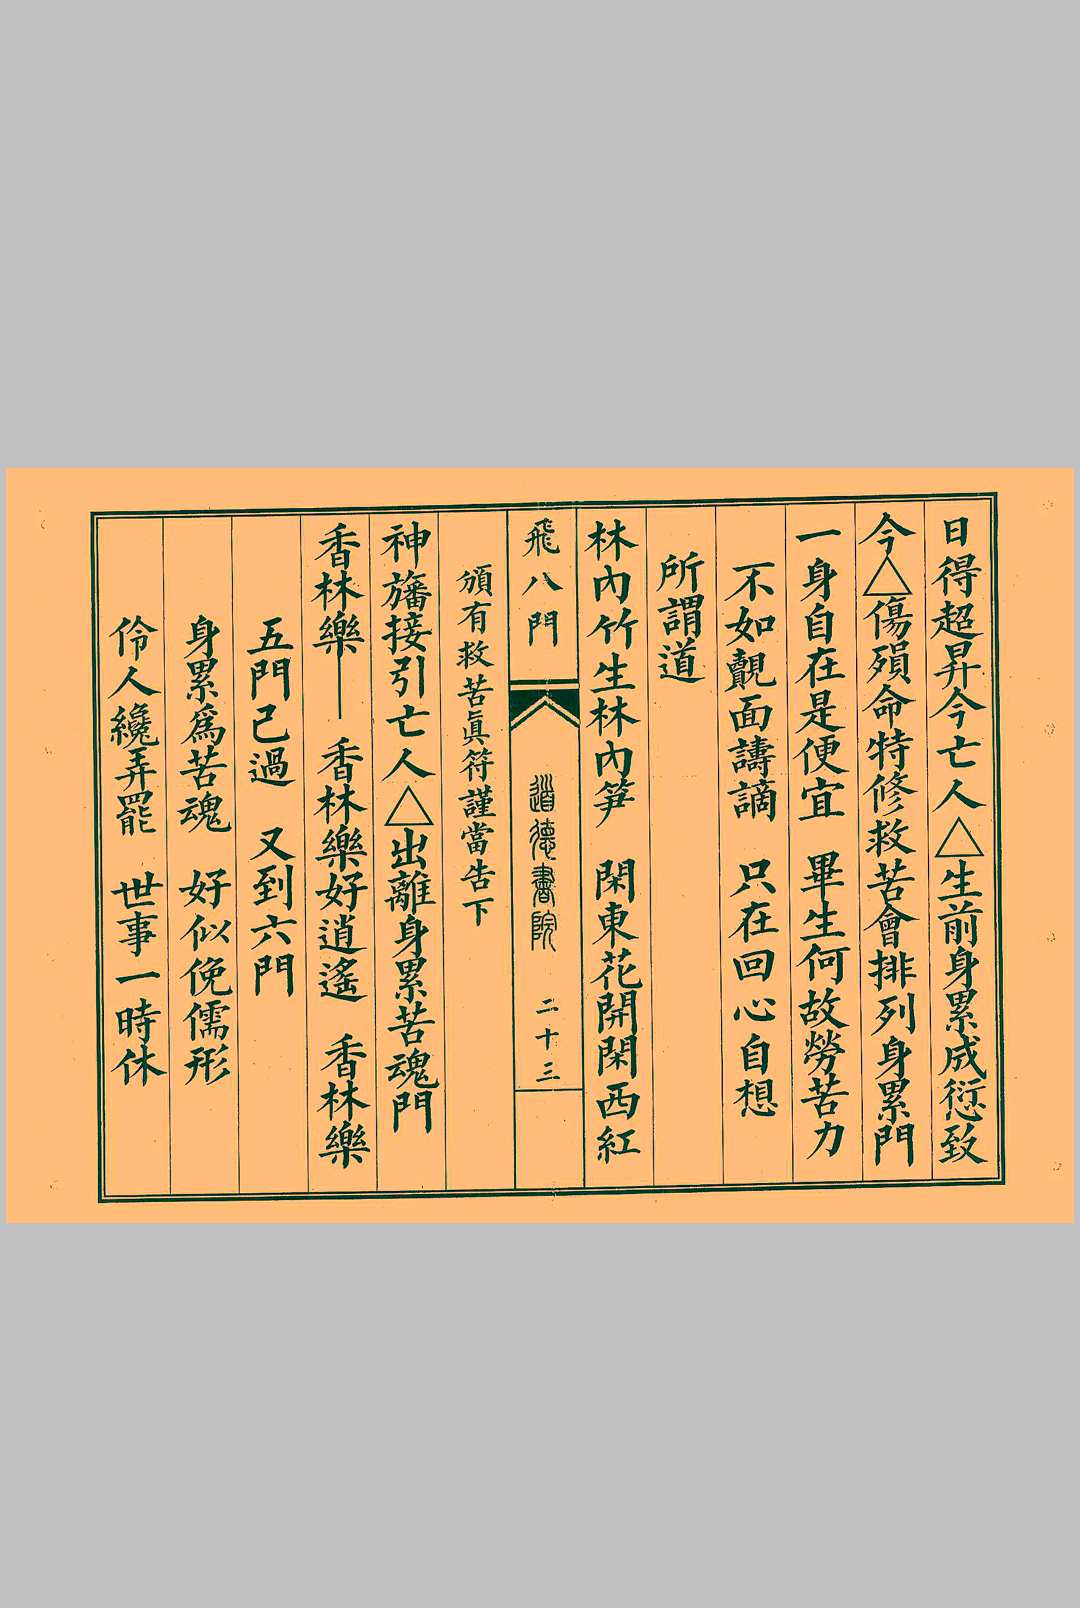 日得超昇今亡人△生前身累成愆致
今△傷殞命特修救苦會排列身累門
一身自在是便宜　畢生何故勞苦力
不如覿面譸謫　只在回心自想
所謂道
林內竹生林內笋　閑東花開閑西紅
飛八門　道德書院　二十三
頒有救苦眞符謹當告下
神旛接引亡人△出離身累苦魂門
香林樂——香林樂好逍遙　香林樂
五門已過　又到六門
身累爲苦魂　好似俛儒形
伶人纔弄罷　世事一時休